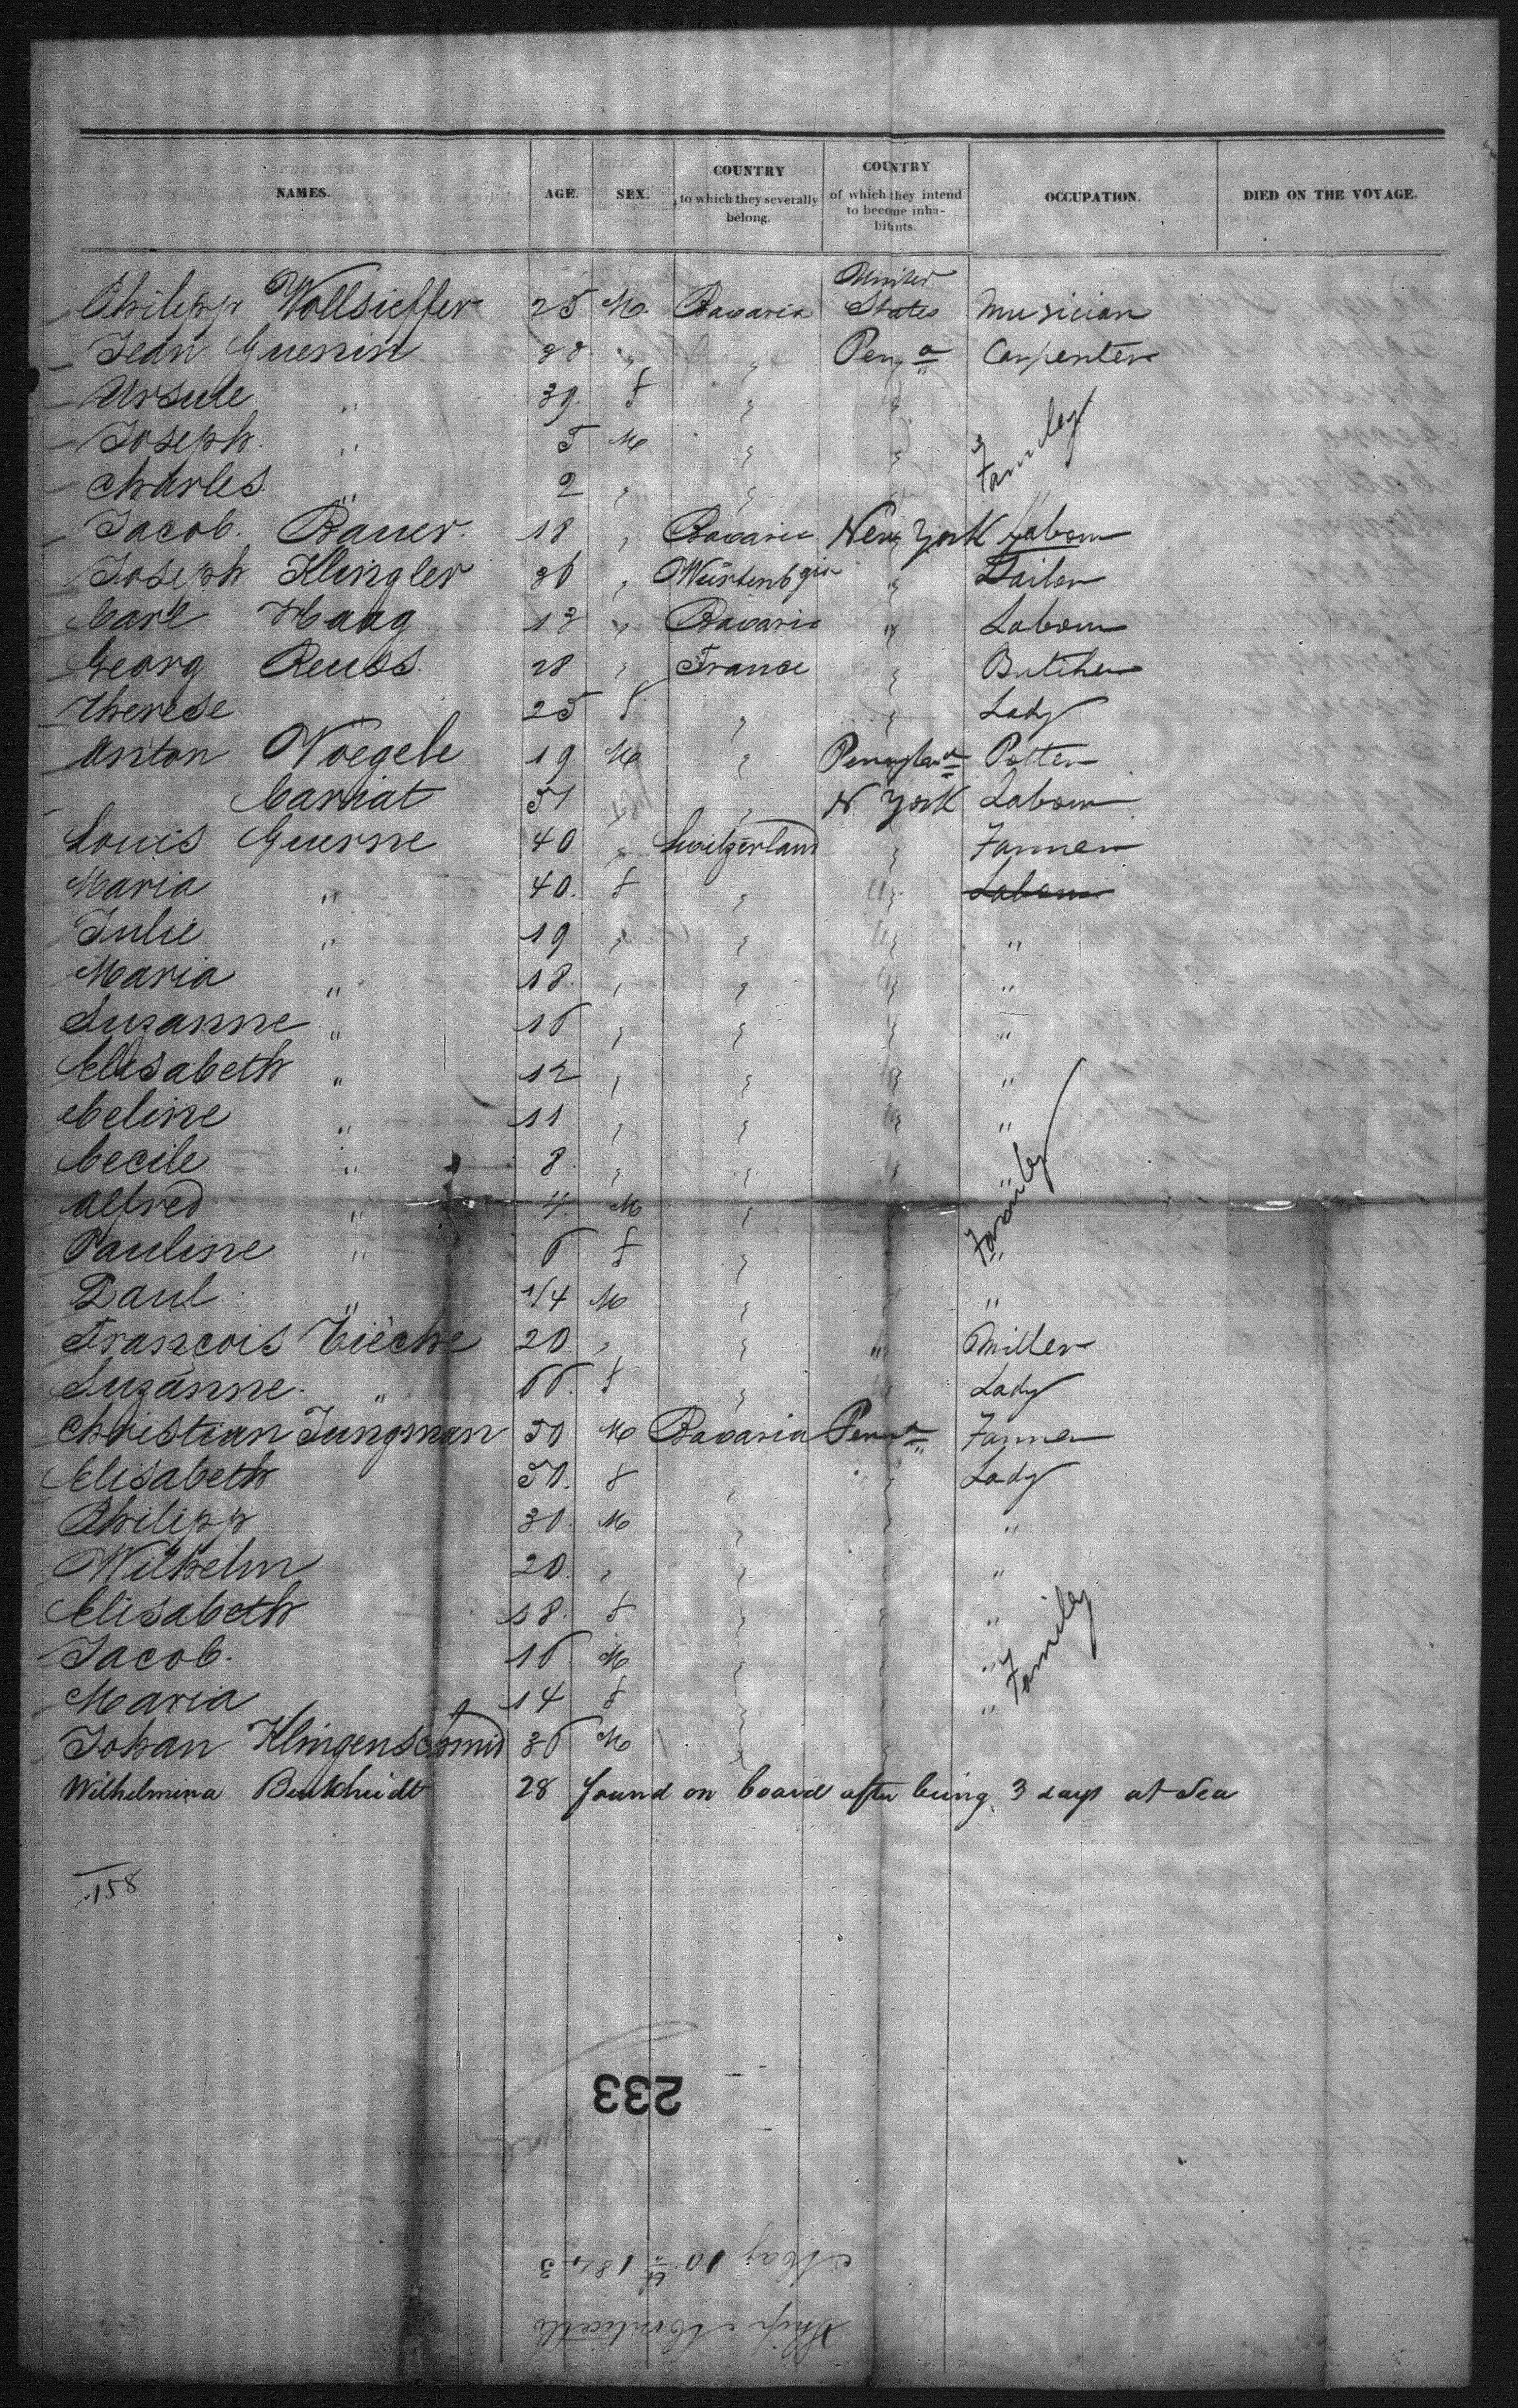 NAMES. AGE. SEX. COUNTRY to which they severally belong. COUNTRY of which they intend to become inhabitants. OCCUPATION. DIED ON THE VOYAGE.
Philipp Wollsieffer 25 M. Bavaria United States Musician
Jean Guenin 38 " " Pen a Carpenter
Ursule " 39. f " "
Joseph. " 5 M " "
Charles. " 2 " " " Family
Jacob. Bauer. 18 " Bavaria New York Labour
Joseph Klingler 36 " Würtenbgia " Tailor
Carl Haag 13 " Bavaria " Labour
Georg Reuss. 28 " France " Butcher
Therese " 25 f " " Lady
Anton Voegele 19 M " Potter
Carriat 51 " " N. York Labour
Louis Guerne 40 " Switzerland " Farmer
Maria " 40. f " " Labour
Julie " 19 " " " "
Maria " 18. " " " "
Suzanne " 16 " " " "
Elisabeth " 12 " " " "
Celine " 11 " " " "
Cecile " 8 " " " "
Alfred " 4. M " Family
Pauline " 6 f " "
Paul " 1/4 M " "
François Tièche 20. " " " Miller
Suzanne. " 66. f " " Lady
Christian Jungman 50 M Bavaria Penna Farmer
Elisabeth 50. f " " Lady
Philipp 30. M " " "
Wilhelm 20. " " " "
Elisabeth 18. f " " "
Jacob. 16 M " " " Family
Maria 14 f " " "
Johan Klingenschmid 36 M " "
Wilhelmina 28 found on board after being 3 days at Sea
158
233
May 10th 1843
Ship Monticello